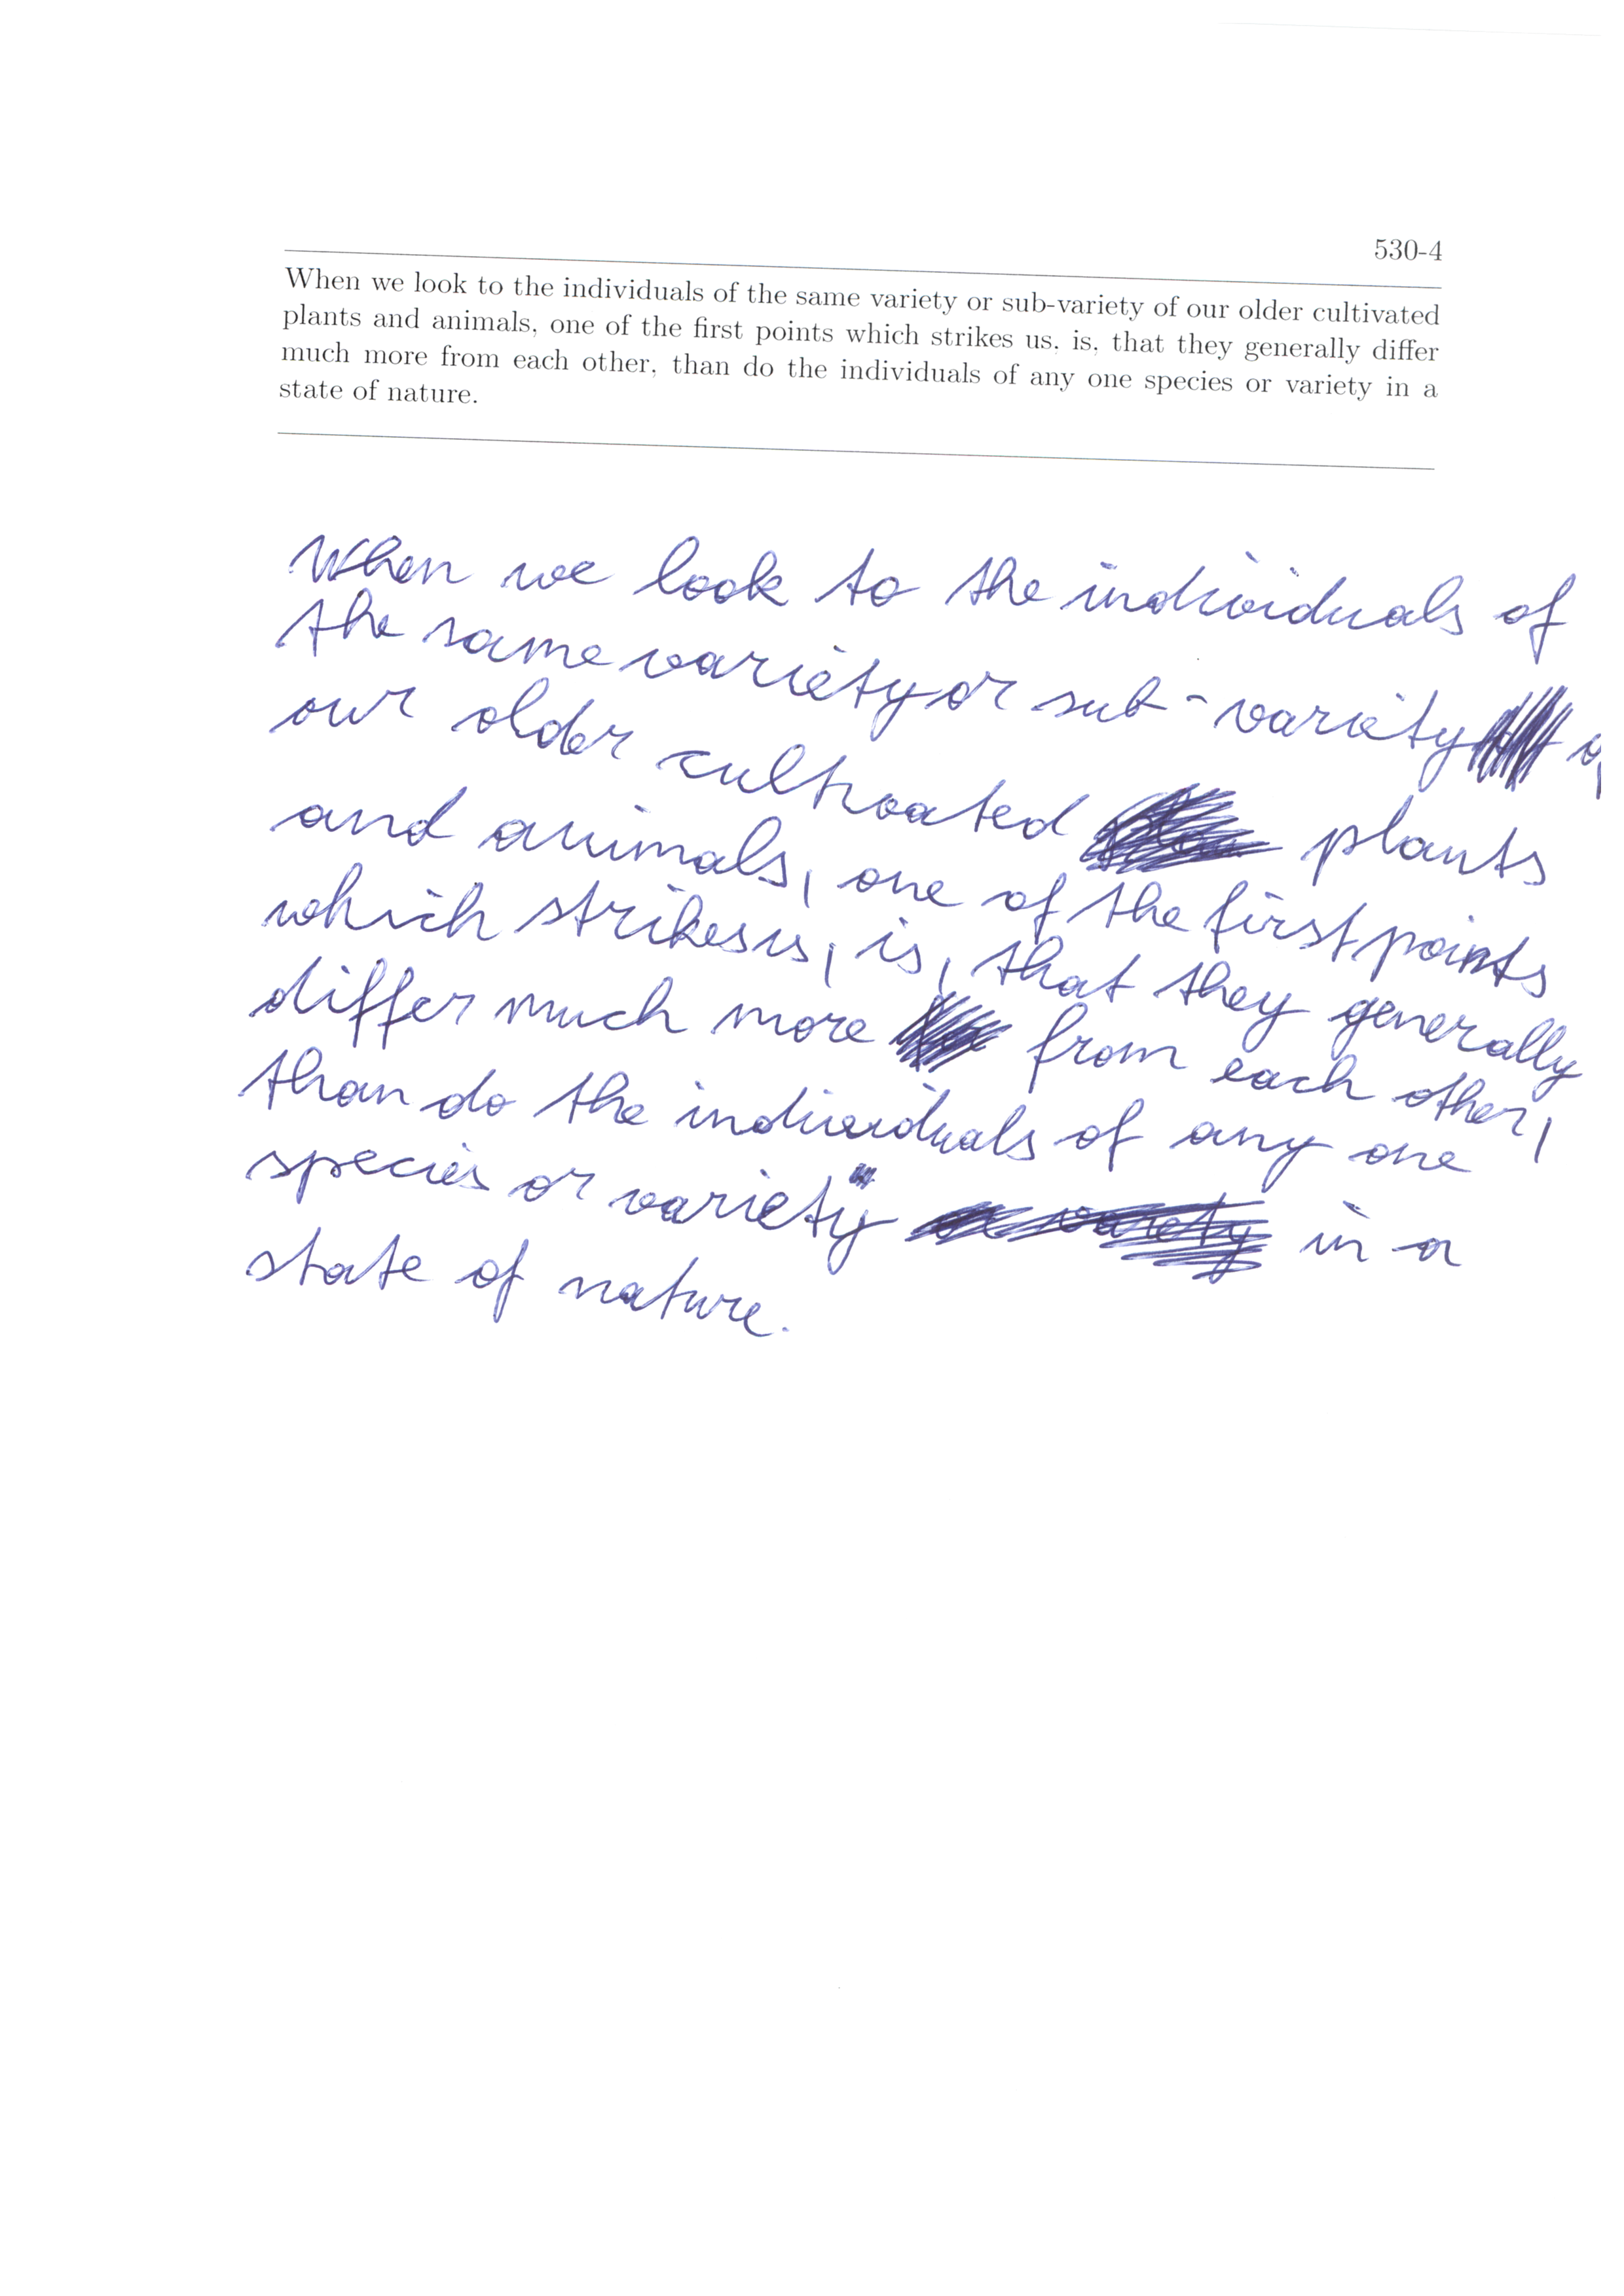 530-4
When we look to the individuals of the same variety or sub-variety of our older cultivated
plants and animals, one of the first points which strikes us, is, that they generally differ
much more from each other, than do the individuals of any one species or variety in a
state of nature.
When we look to the individuals of
the same variety or sub-variety
our older cultivated plants
and animals, one of the first points
which strikes us, is, that they generally
differ much more from each other,
than do the individuals of any one
species or variety in a
state of nature.